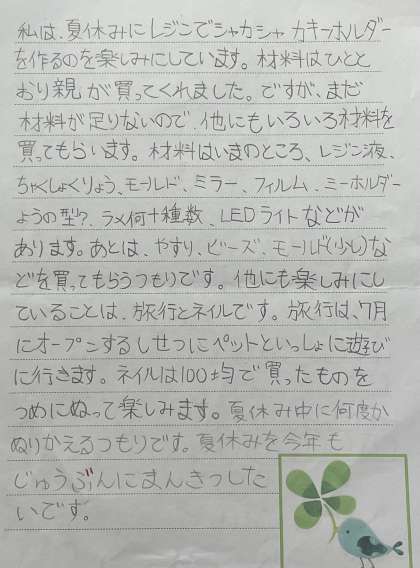 私は、夏休みにレジンでシャカシャカキーホルダー
を作るのを楽しみにしています。材料はひとと
おり親が買ってくれました。ですが、まだ
材料が足りないので、他にもいろいろ材料を
買ってもらいます。材料はいまのところ、レジン液、
ちゃくしょくりょう、モールド、ミラー、フィルム、ミーホルダー
ようの型?、ラメ何十種数、LEDライトなどが
あります。あとは、やすり、ビーズ、モールド(少し)な
どを買ってもらうつもりです。他にも楽しみにし
ていることは、旅行とネイルです。旅行は、7月
にオープンするしせつにペットといっしょに遊び
に行きます。ネイルは100均で買ったものを
つめにぬって楽しみます。夏休み中に何度か
ぬりかえるつもりです。夏休みを今年も
じゅうぶんにまんきつした
いです。